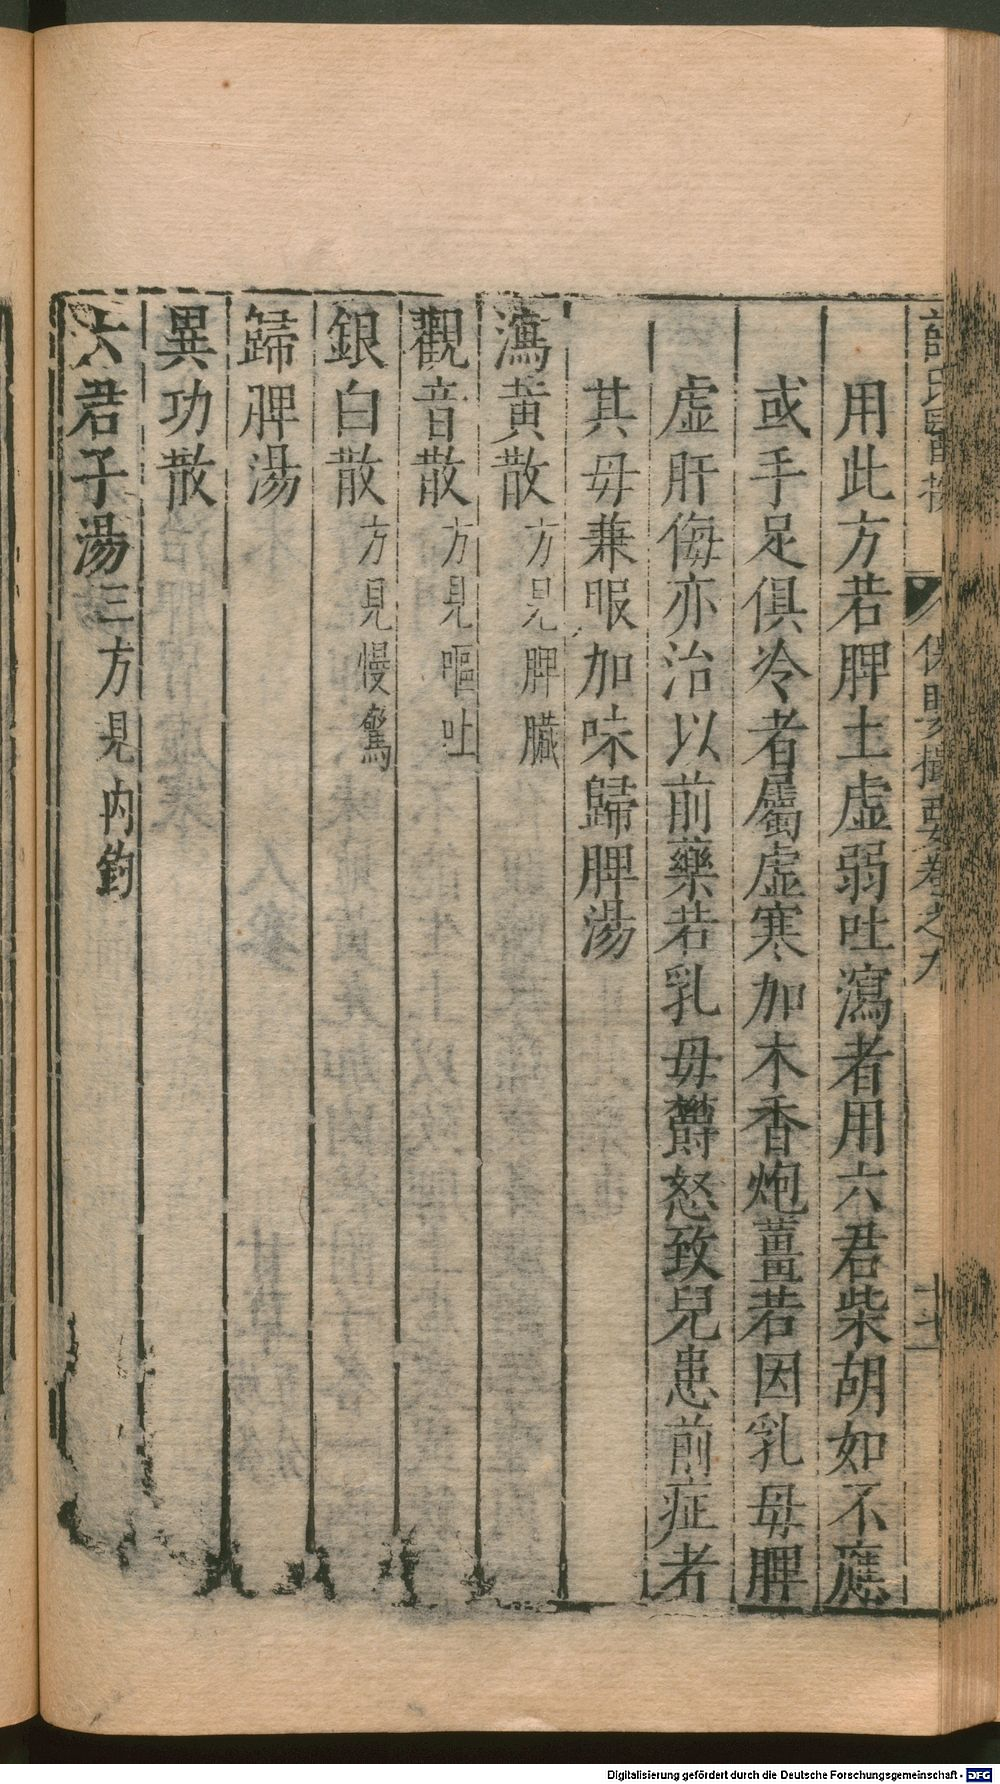 保嬰撮要卷之九
用此方若脾土虛弱吐瀉者用六君柴胡如不應
或手足俱冷者屬虛寒加木香炮薑若因乳母脾
虛肝侮亦治以前藥若乳母欝怒致兒患前症者
其母兼服加味歸脾湯
瀉黄散方見脾臓
觀音散方見嘔吐
銀白散方見慢驚
歸脾湯
異功散
六君子湯三方見内釣
Digitalisierung gefördert durch die Deutsche Forschungsgemeinschaft - DFG